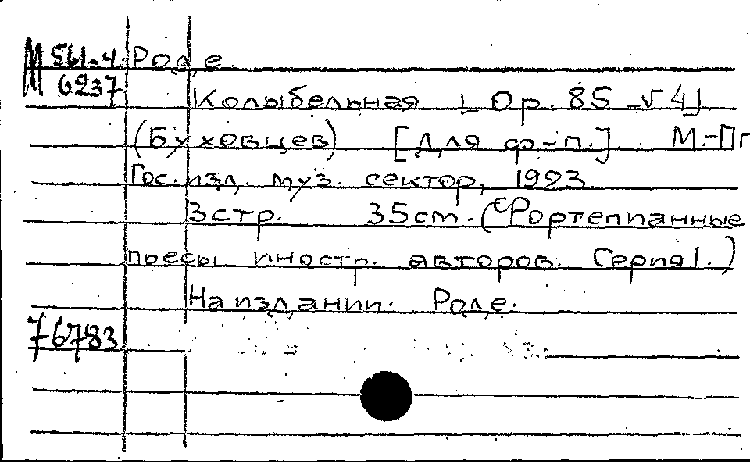 М 561-4 Роде.
6237
Колыбельная [Op. 85 №4]
(Буховцев) [Для ф-п.] М.-Пг
Гос. изд. муз. сектор, 1923.
3 стр. 35 cm. (Фортепианные
пьесы иностр. авторов. Серия I.)
На издании: Роде.
76783